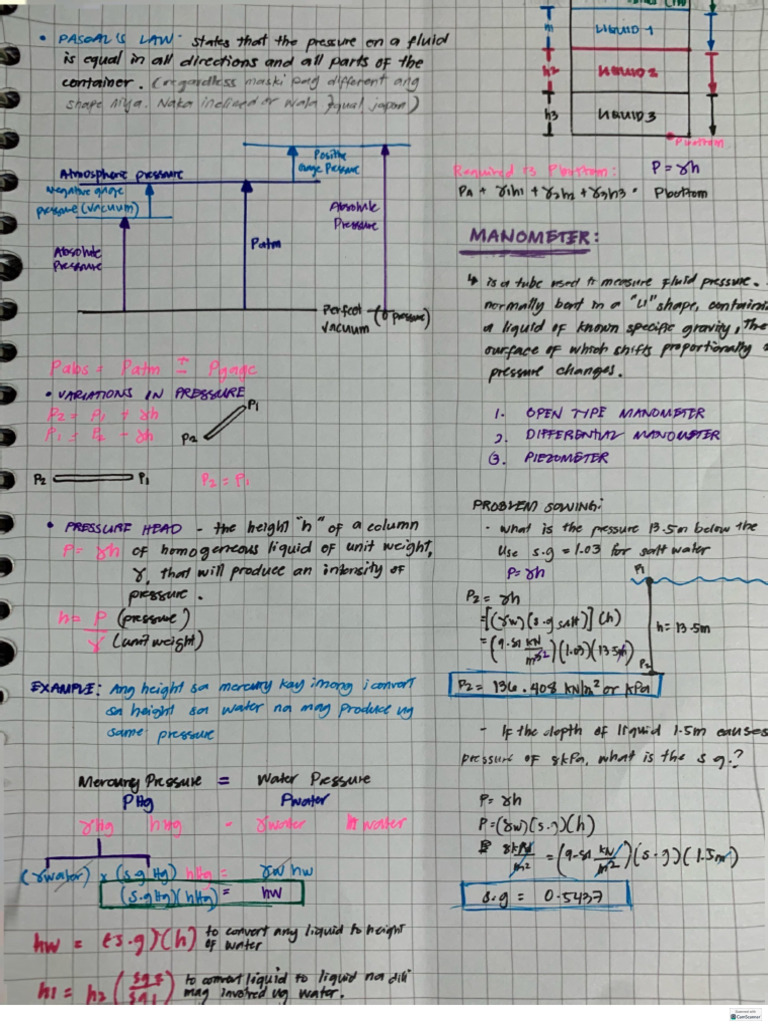 • PASCAL'S LAW- states that the pressure on a fluid
is equal in all directions and all parts of the
container. (regardless maski pag different ang
shape niya. Naka inclined or wala equal japon)
Atmospheric pressure
Negative gauge
pressure (vacuum)
Positive
Gauge Pressure
Absolute
Pressure
Absolute
Pressure
Patm
Perfect
vacuum
(0 pressure)
Pabs = Patm ± Pgage
• VARIATIONS IN PRESSURE
P2 = P1 + γh
P1 = P2 - γh
P1
P2
P2
P1
P2 = P1
• PRESSURE HEAD - the height "h" of a column
P = γh of homogeneous liquid of unit weight,
γ, that will produce an intensity of
pressure.
h = P (pressure)
γ (unit weight)
EXAMPLE: Ang height sa mercury kay imong i convert
sa height sa water na mag produce ug
same pressure
Mercury Pressure = Water Pressure
PHg Pwater
γHg hHg = γwater h water
(γwater) x (s.g Hg) hHg = γw hw
(s.g Hg)(hHg) = hw
hw = (s.g)(h) to convert any liquid to height
of water
h1 = h2 (sg2/sg1) to convert liquid to liquid na dili
mag involved ug water.
h1
LIQUID 1
h2
LIQUID 2
h3
LIQUID 3
Pbottom
Required is Pbottom: P = γh
PA + γ1h1 + γ2h2 + γ3h3 = Pbottom
MANOMETER:
↳ is a tube used to measure fluid pressure.
normally bent in a "U" shape,
a liquid of known specific gravity, The
surface of which shifts proportionally
pressure changes.
1. OPEN TYPE MANOMETER
2. DIFFERENTIAL MANOMETER
3. PIEZOMETER
PROBLEM SOLVING:
- what is the pressure 13.5m below the
Use s.g = 1.03 for salt water
P = γh
P1
P2 = γh
= [(γw)(s.g salt)](h)
= (9.81 kN/m³2)(1.03)(13.5m)
h = 13.5m
P2
P2 = 136.408 kN/m² or kPa
- If the depth of liquid 1.5m causes
pressure of 8kPa, what is the s g.?
P = γh
P = (γw)(s.g)(h)
8 kPa/m² = (9.81 kN/m²)(s.g)(1.5m)
s.g = 0.5437
Scanned with
CamScanner